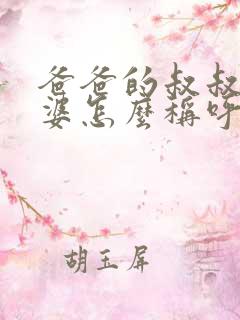 爸爸的叔叔
婆怎麼稱呼
胡玉屏